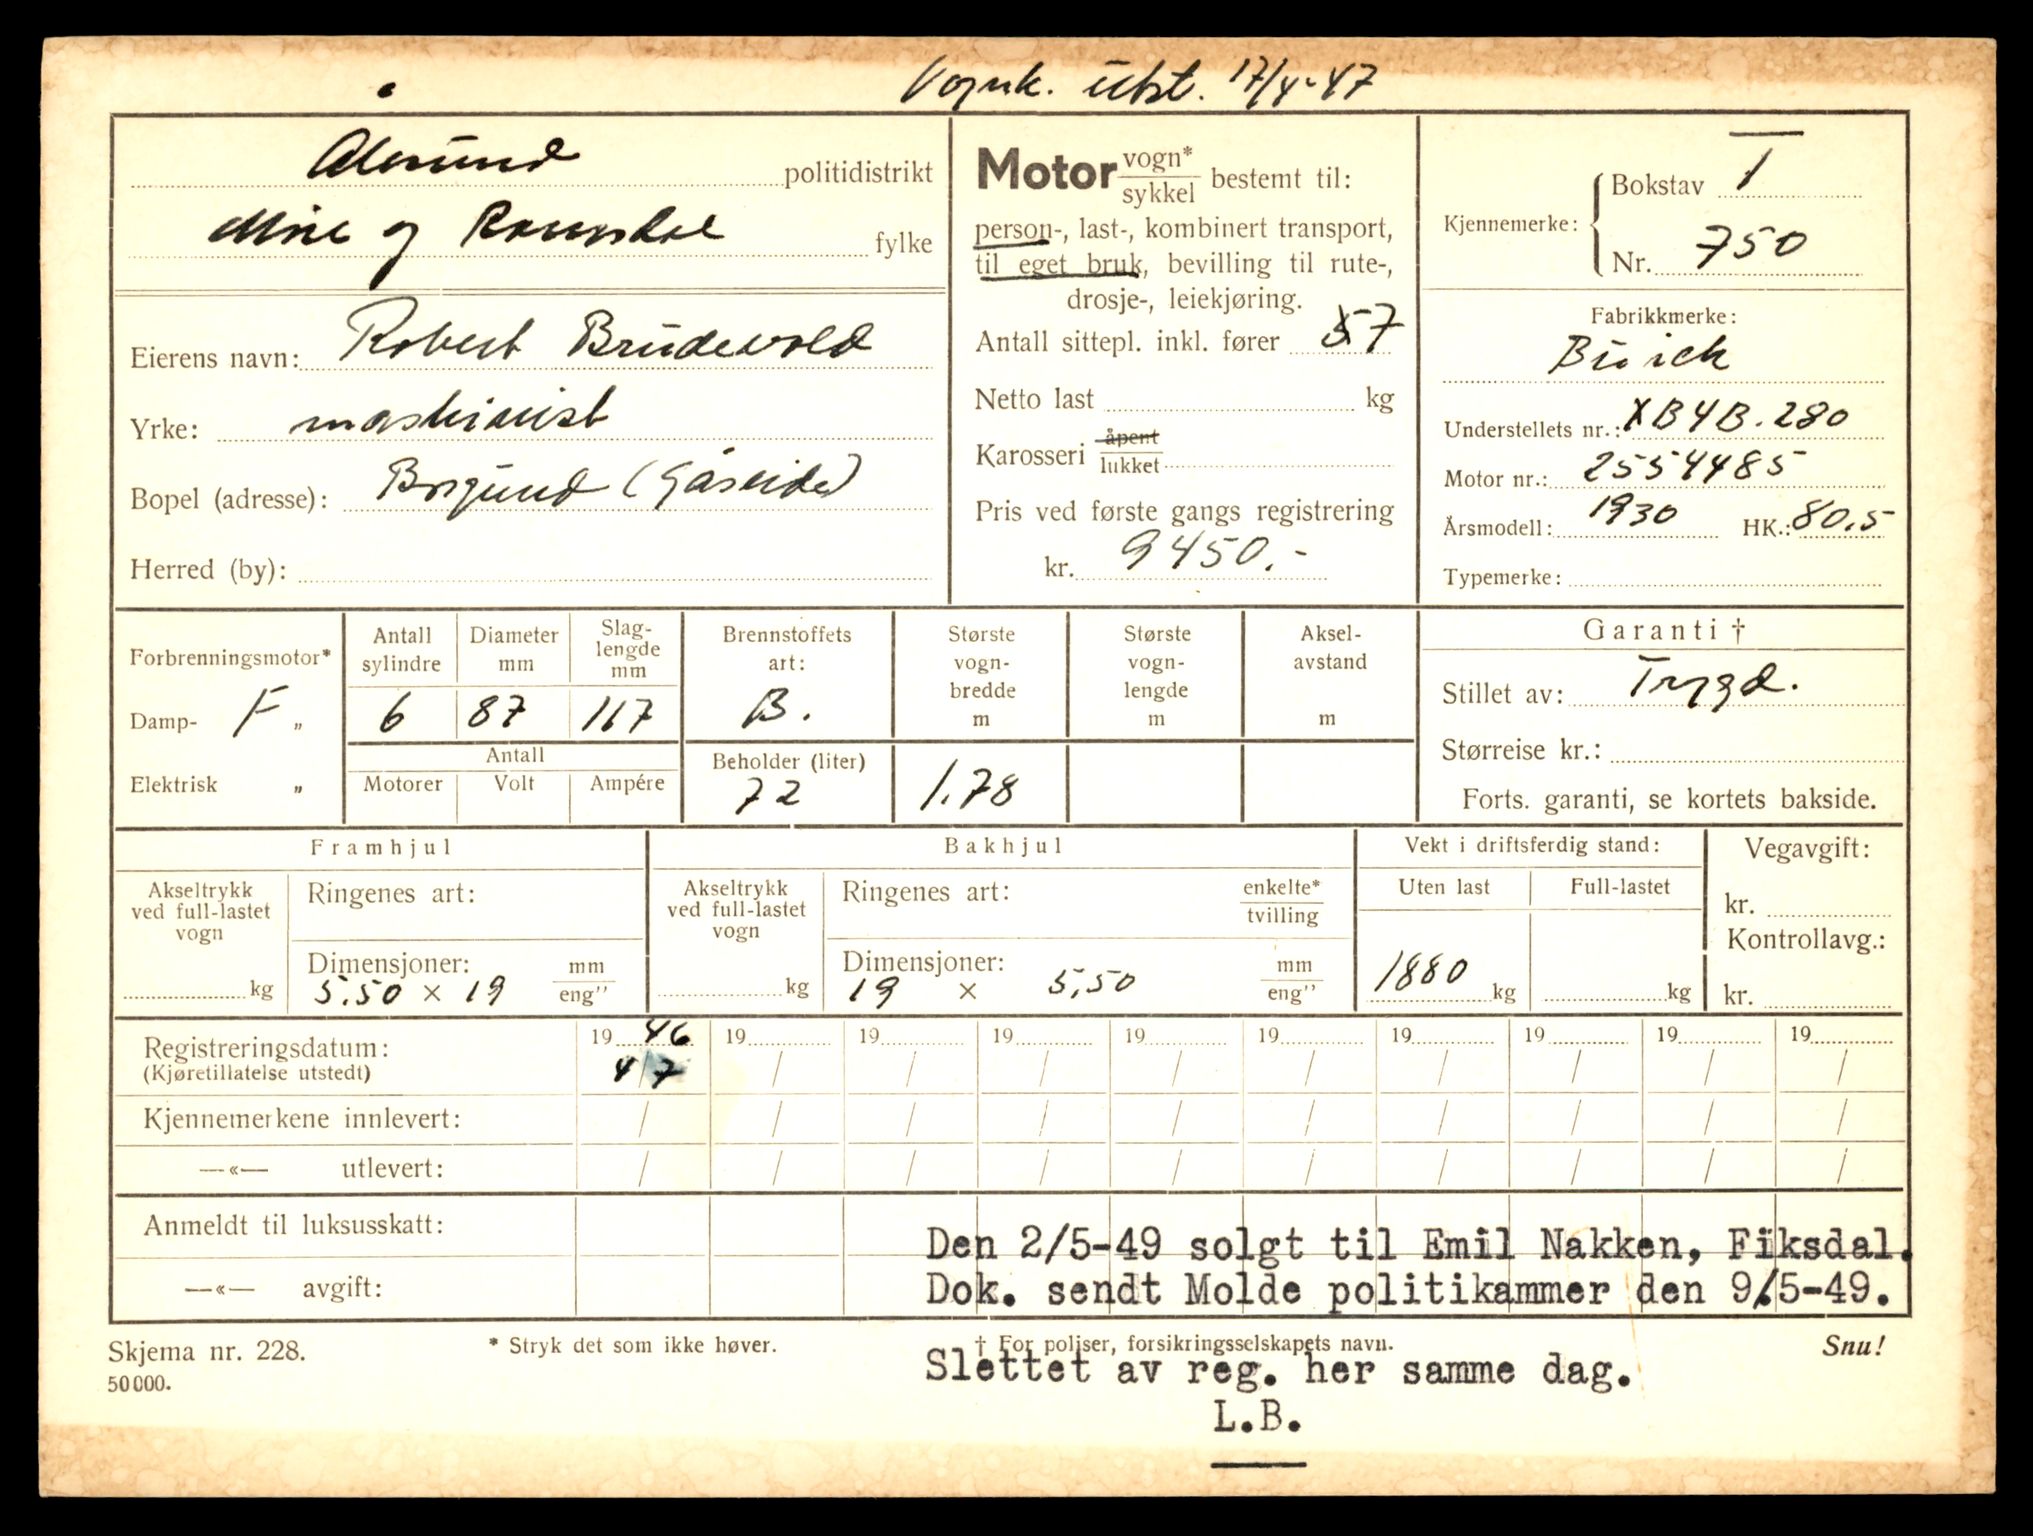 Vognk. utst. 17/4-47
Ålesund politidistrikt
Møre og Romsdal fylke
Eierens navn: Robert Brudevold
Yrke: maskinist
Bopel (adresse): Borgund (Gåseide)
Herred (by):
Motor vogn* / sykkel bestemt til:
person-, last-, kombinert transport,
til eget bruk, bevilling til rute-,
drosje-, leiekjøring.
Antall sittepl. inkl. fører 57
Netto last kg
Karosseri åpent / lukket
Pris ved første gangs registrering
kr. 9450.-
Kjennemerke: Bokstav T
Nr. 750
Fabrikkmerke:
Buick
Understellets nr.: XB4B.280
Motor nr.: 2554485
Årsmodell: 1930 HK.: 80.5
Typemerke:
Forbrenningsmotor*
Damp- F „
Elektrisk „
Antall sylindre
6
Diameter mm
87
Slag-
lengde
mm
117
Antall
Motorer Volt Ampére
Brennstoffets
art:
B.
Beholder (liter)
72
Største
vogn-
bredde
m
1.78
Største
vogn-
lengde
m
Aksel-
avstand
m
Garanti †
Stillet av: Trygd.
Størreise kr.:
Forts. garanti, se kortets bakside.
Framhjul
Akseltrykk
ved full-lastet
vogn
kg
Ringenes art:
Dimensjoner: mm
5.50 × 19 eng”
Bakhjul
Akseltrykk
ved full-lastet
vogn
kg
Ringenes art: enkelte*
tvilling
Dimensjoner: mm
19 × 5,50 eng”
Vekt i driftsferdig stand:
Uten last Full-lastet
1880 kg kg
Vegavgift:
kr.
Kontrollavg.:
kr.
Registreringsdatum: 19 46 19 19 19 19 19 19 19 19 19
(Kjøretillatelse utstedt) 4/7 / / / / / / / / /
Kjennemerkene innlevert: / / / / / / / / / /
—«— utlevert: / / / / / / / / / /
Anmeldt til luksusskatt:
—«— avgift:
Den 2/5-49 solgt til Emil Nakken, Fiksdal.
Dok. sendt Molde politikammer den 9/5-49.
Skjema nr. 228.
50000.
* Stryk det som ikke høver.
† For poliser, forsikringsselskapets navn.
Snu!
Slettet av reg. her samme dag.
L.B.